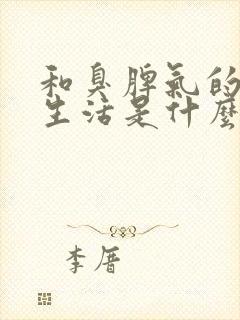 和臭脾氣的
生活是什麼
李厝